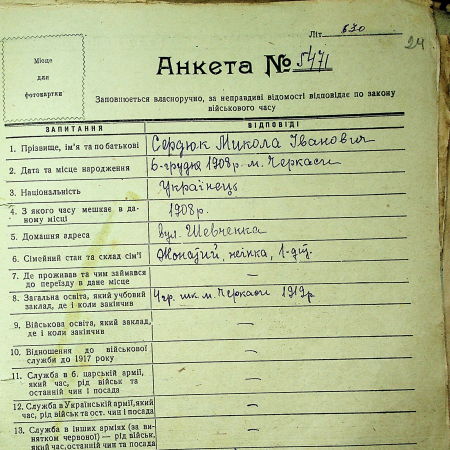 Літ. 630
24
Місце
для
фотокартки
Анкета № 5471
Заповнюється власноручно, за неправдиві відомості відповідає по закону
військового часу
ЗАПИТАННЯ ВІДПОВІДІ
1. Прізвище, ім'я та по батькові Сердюк Микола Іванович
2. Дата та місце народження 6-грудня 1908р. м. Черкаси
3. Національність Українець
4. З якого часу мешкає в да-
ному місці 1908 р.
5. Домашня адреса вул. Шевченка
6. Сімейний стан та склад сім'ї Жонатий, жінка, 1-діт.
7. Де проживав та чим займався
до переїзду в дане місце
8. Загальна освіта, який учбовий
заклад, де і коли закінчив 4 гр. шк. м. Черкаси 1919р.
9. Військова освіта, який заклад,
де і коли закінчив —
10. Відношення до військової
служби до 1917 року —
11. Служба в б. царській армії,
який час, рід військ та
останній чин і посада —
12. Служба в Українській армії, який
час, рід військ та ост. чин і посада —
13. Служба в інших арміях (за ви-
нятком червоної) — рід військ,
який час, останній чин та посада —